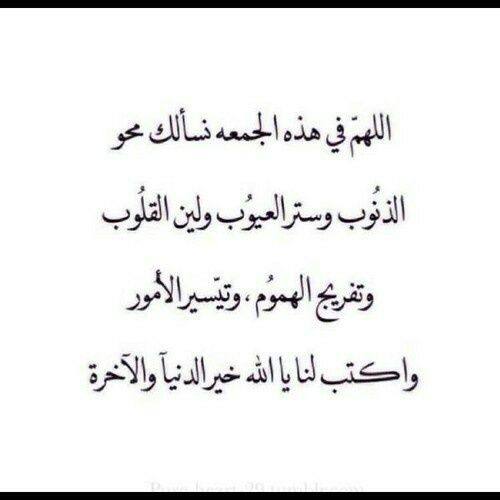 اللهمّ في هذه الجمعه نسألك محو
الذنُوب وستر العيوُب ولين القلُوب
وتفريج الهموُم ، وتيّسير الأمور
واكتب لنا يا الله خير الدنيآ والآخرة